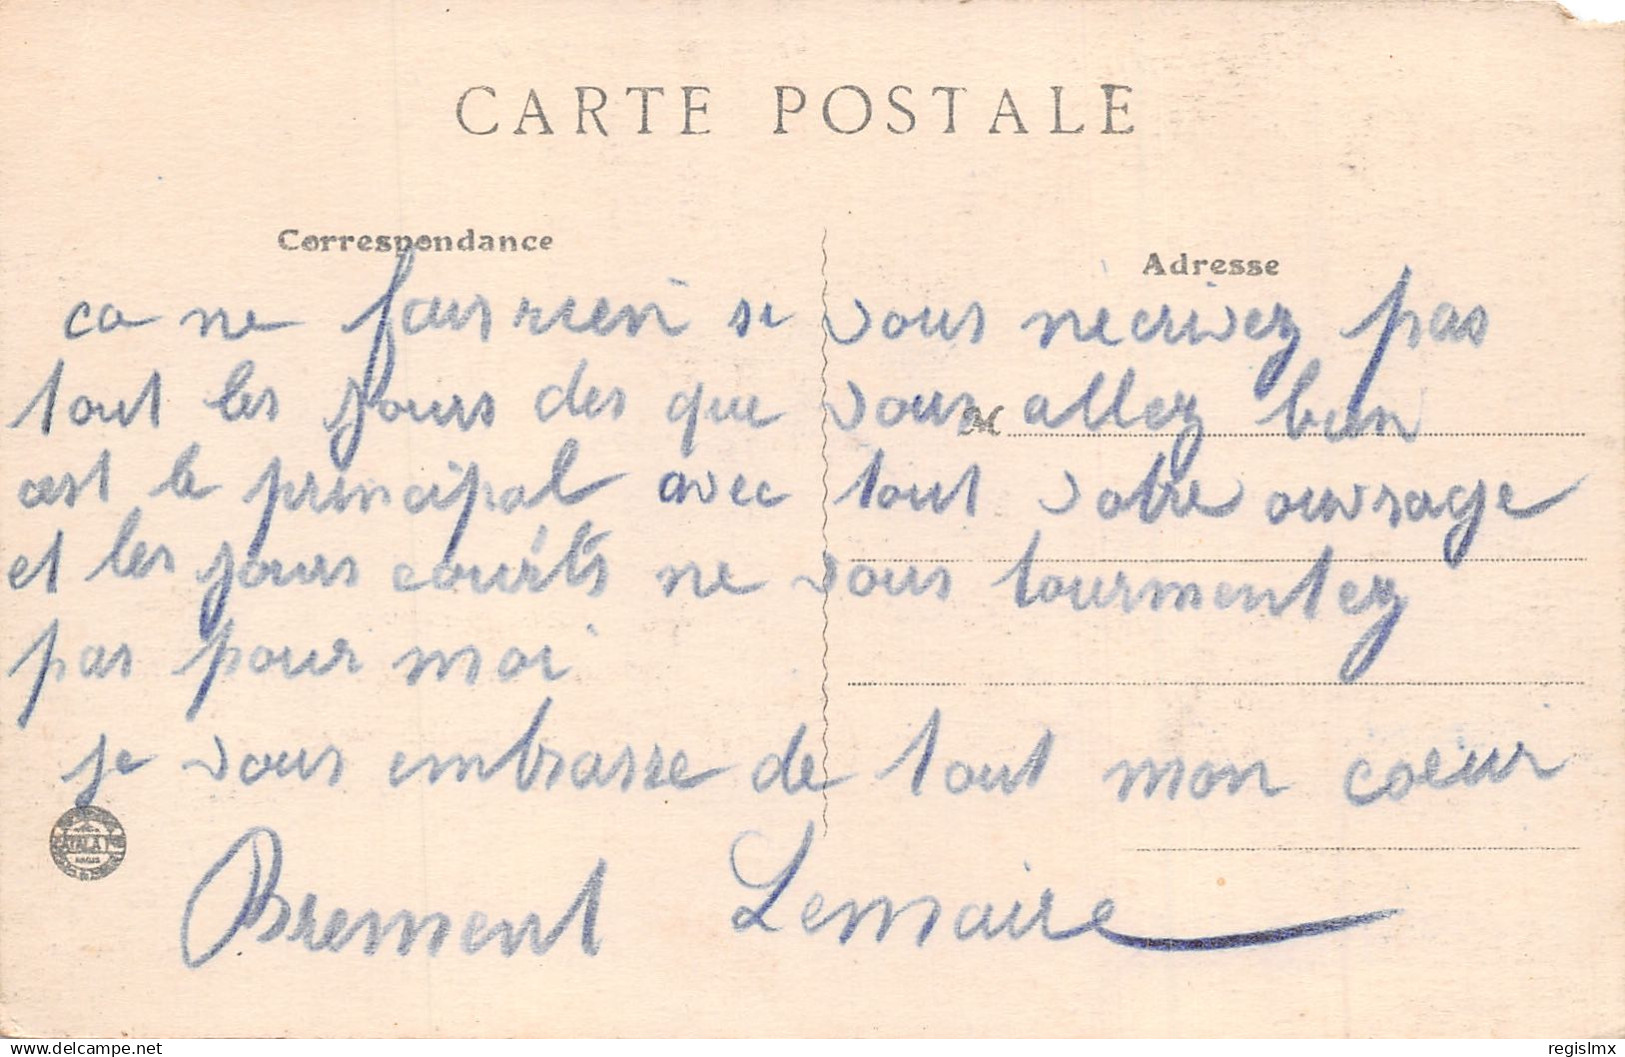 CARTE POSTALE
Correspondance
Adresse
ca ne fais rien si vous necrivez pas
tout les jours des que vous allez bien
M
cest le principal avec tout votre ouvrage
et les jours courts ne vous tourmentez
pas pour moi
je vous embrasse de tout mon coeur
Brement Lemaire
CATALA
PARIS
delcampe.net
regislmx